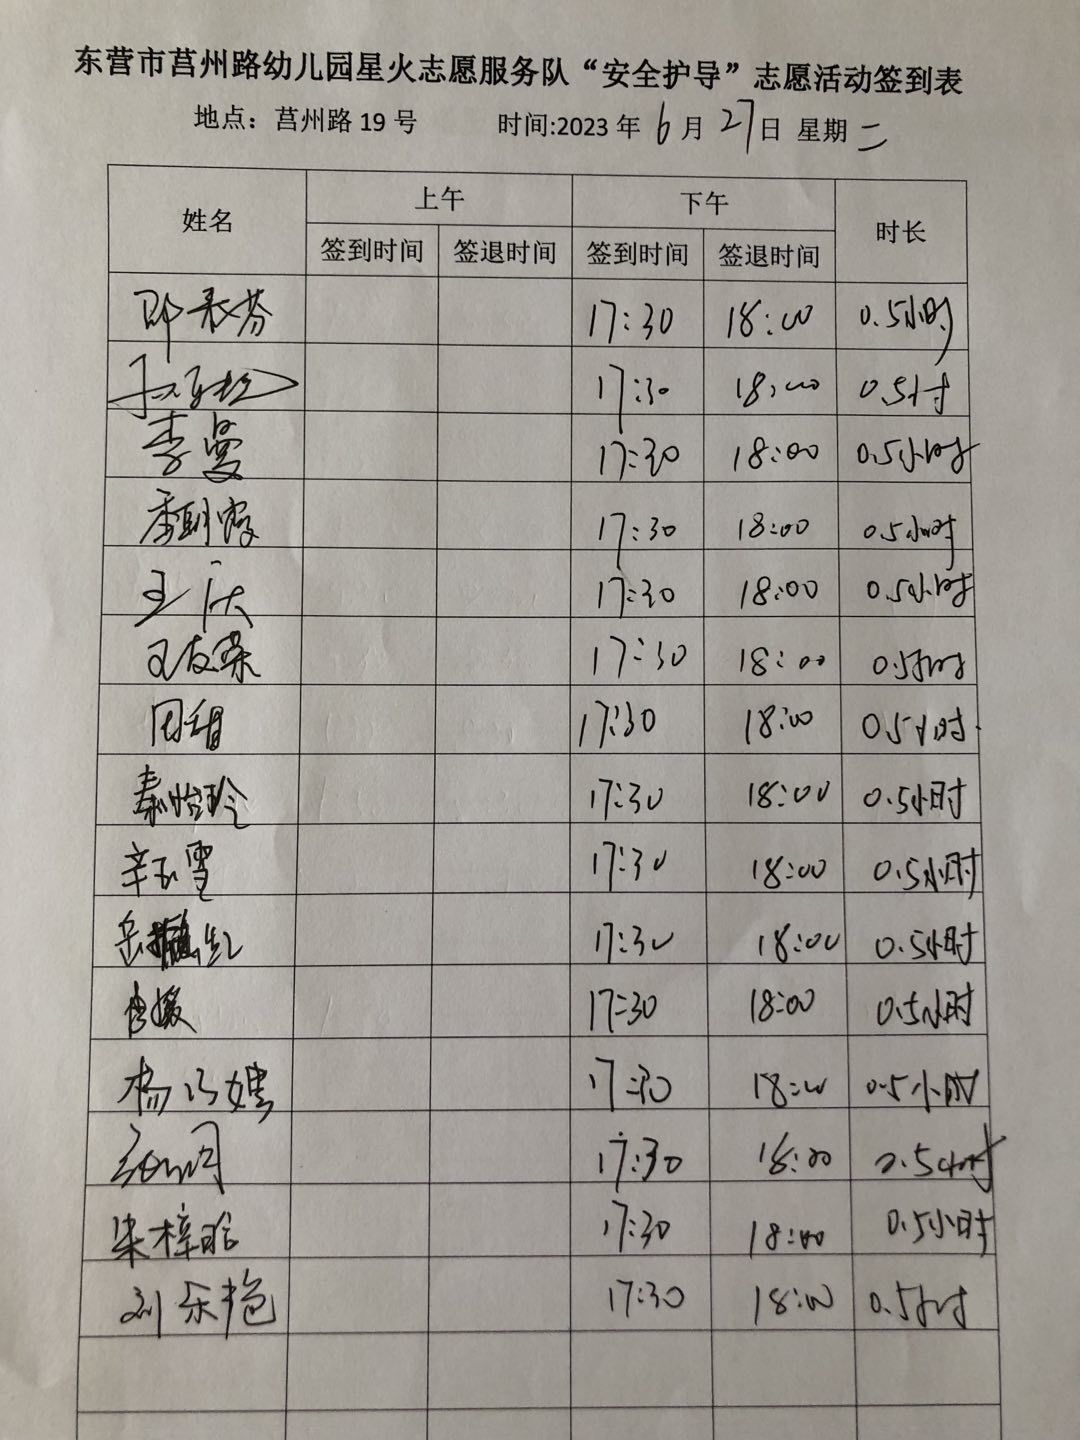 东营市莒州路幼儿园星火志愿服务队“安全护导”志愿活动签到表
地点：莒州路 19 号 时间:2023 年 6 月 27 日 星期 二
姓名 上午 下午 时长
签到时间 签退时间 签到时间 签退时间
17:30 18:00 0.5小时
17:30 18:00 0.5小时
李曼 17:30 18:00 0.5小时
17:30 18:00 0.5小时
王庆 17:30 18:00 0.5小时
王友荣 17:30 18:00 0.5小时
周甜 17:30 18:00 0.5小时
秦怡玲 17:30 18:00 0.5小时
辛玉雪 17:30 18:00 0.5小时
17:30 18:00 0.5小时
17:30 18:00 0.5小时
17:30 18:00 0.5小时
17:30 18:00 0.5小时
17:30 18:00 0.5小时
刘乐艳 17:30 18:00 0.5小时